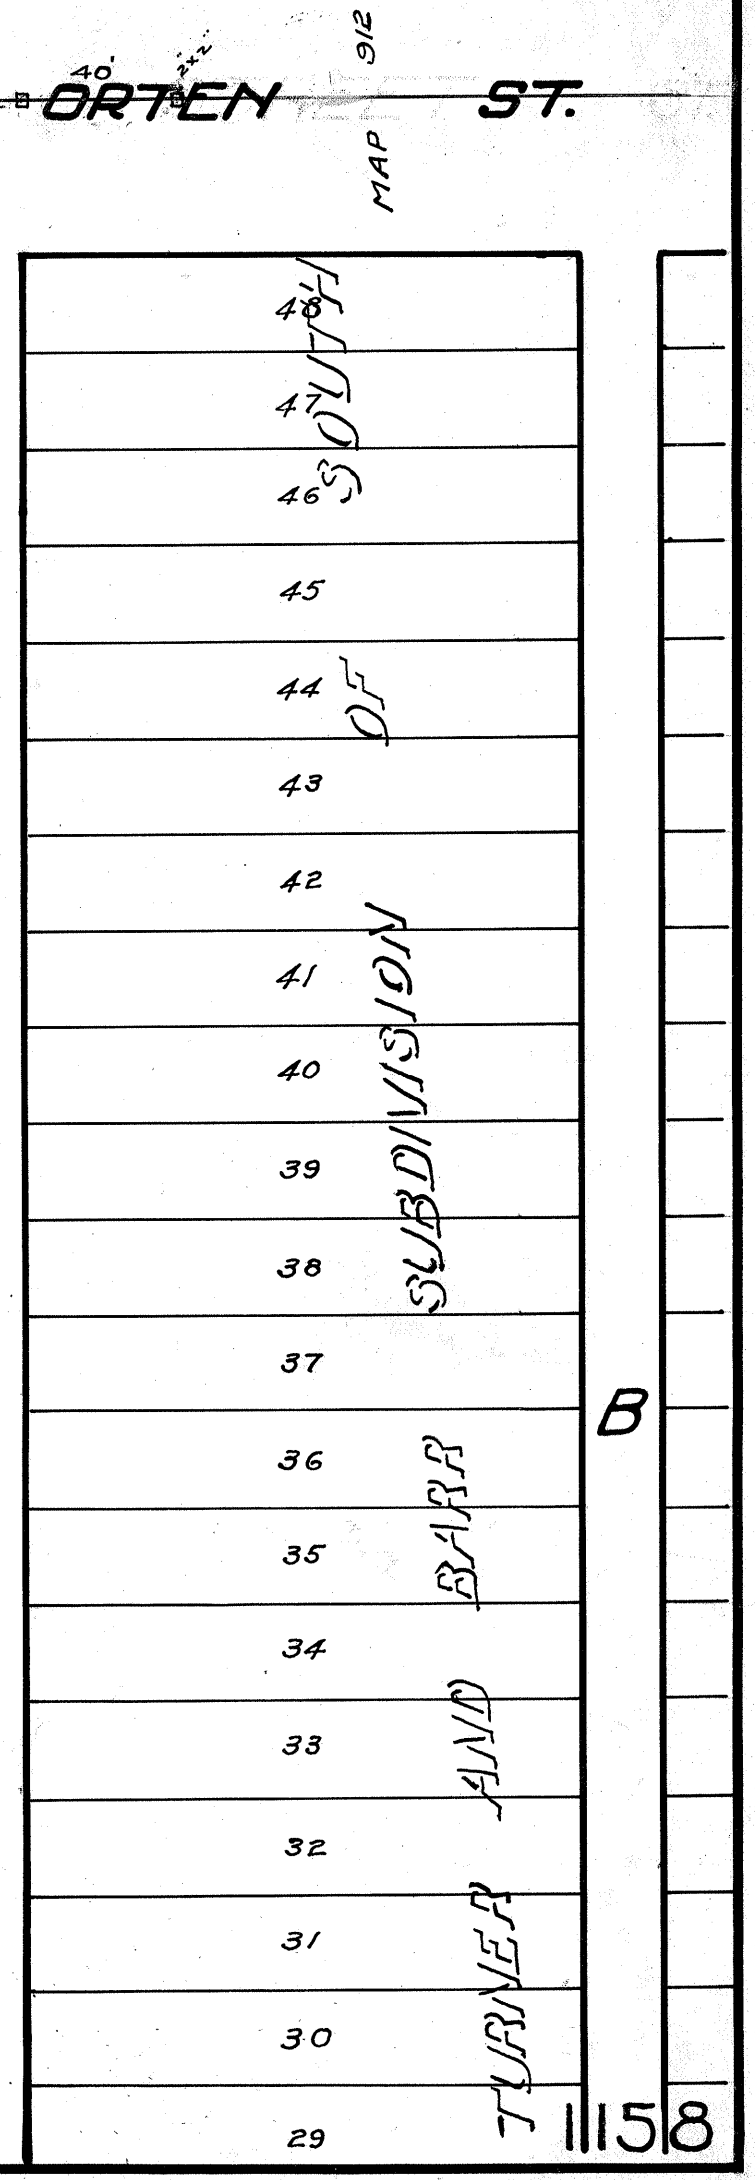 912
40'
2x2"
ORTEN ST.
MAP
48
47
46
45
44
43
42
41
40
39
38
37
B
36
35
34
33
32
31
30
29
TURNER AND BARR SUBDIVISION OF SOUTH
11158